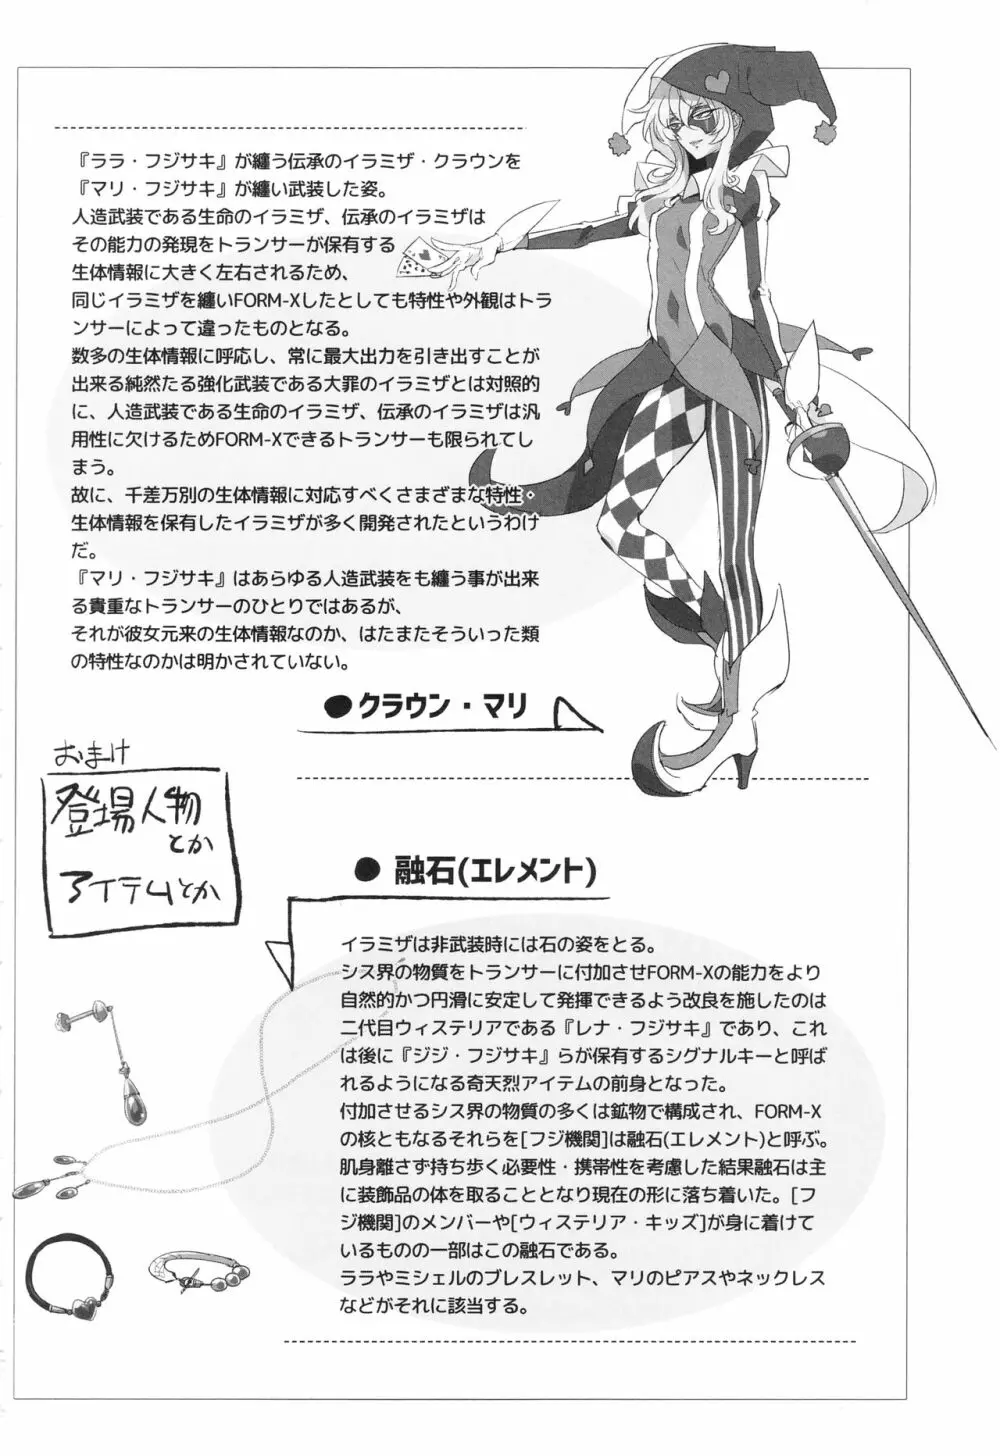 『ララ・フジサキ』が纏う伝承のイラミザ・クラウンを
『マリ・フジサキ』が纏い武装した姿。
人造武装である生命のイラミザ、伝承のイラミザは
その能力の発現をトランサーが保有する
生体情報に大きく左右されるため、
同じイラミザを纏いFORM-Xしたとしても特性や外観はトラ
ンサーによって違ったものとなる。
数多の生体情報に呼応し、常に最大出力を引き出すことが
出来る純然たる強化武装である大罪のイラミザとは対照的
に、人造武装である生命のイラミザ、伝承のイラミザは汎
用性に欠けるためFORM-Xできるトランサーも限られてし
まう。
故に、千差万別の生体情報に対応すべくさまざまな特性・
生体情報を保有したイラミザが多く開発されたというわけ
だ。
『マリ・フジサキ』はあらゆる人造武装をも纏う事が出来
る貴重なトランサーのひとりではあるが、
それが彼女元来の生体情報なのか、はたまたそういった類
の特性なのかは明かされていない。
●クラウン・マリ
おまけ
登場人物
とか
アイテムとか
● 融石(エレメント)
イラミザは非武装時には石の姿をとる。
シス界の物質をトランサーに付加させFORM-Xの能力をより
自然的かつ円滑に安定して発揮できるよう改良を施したのは
二代目ウィステリアである『レナ・フジサキ』であり、これ
は後に『ジジ・フジサキ』らが保有するシグナルキーと呼ば
れるようになる奇天烈アイテムの前身となった。
付加させるシス界の物質の多くは鉱物で構成され、FORM-X
の核ともなるそれらを[フジ機関]は融石(エレメント)と呼ぶ。
肌身離さず持ち歩く必要性・携帯性を考慮した結果融石は主
に装飾品の体を取ることとなり現在の形に落ち着いた。[フ
ジ機関]のメンバーや[ウィステリア・キッズ]が身に着けて
いるものの一部はこの融石である。
ララやミシェルのブレスレット、マリのピアスやネックレス
などがそれに該当する。